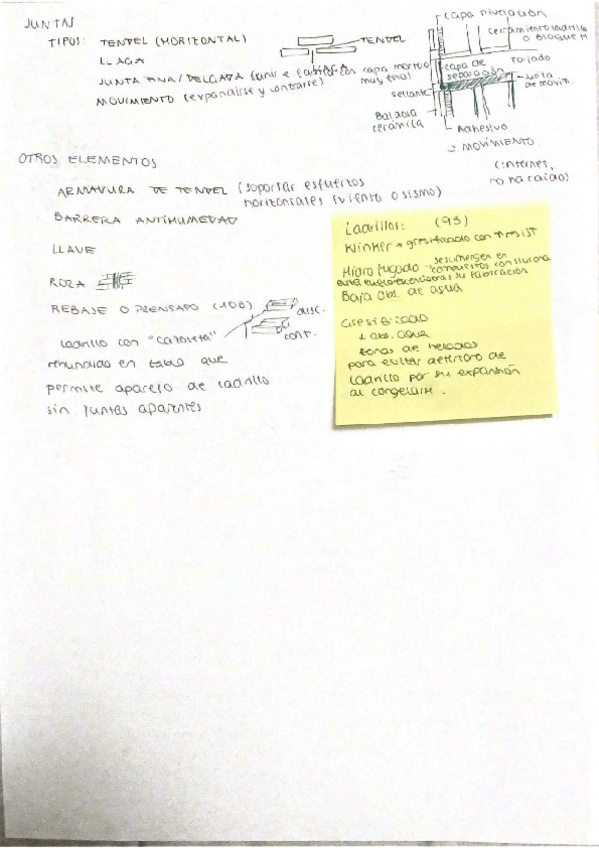 JUNTAS
TIPOS: TENDEL (HORIZONTAL)
LLAGA
JUNTA FINA/DELGADA (unir e fabricar con capa mortero muy fino)
MOVIMIENTO (expandirse y contraerse)
TENDEL
LLAGA
capa nivelación
cerramiento ladrillo
o bloque H
Forjado
capa de
separación
Junta
de movim.
sellante
Baldosa
cerámica
Adhesivo
MOVIMIENTO
(internet,
no ha caido)
OTROS ELEMENTOS
ARMADURA DE TENDEL (soportar esfuerzos
horizontales (viento o sismo)
BARRERA ANTIHUMEDAD
LLAVE
ROZA
REBAJE O PRENSADO (108)
disc.
cont.
ladrillo con "cazoleta"
rehundido en tabla que
permite aparejo de ladrillo
sin juntas aparentes
Ladrillos: (93)
Klinker → gresificado con ↑ resist
Hidrofugado se sumergen en
compuestos con silicona
su fabricación
Baja abs. de agua
Gresificado
↓ abs. agua
zonas de heladas
para evitar deterioro de
ladrillo por su expansión
al congelarse.